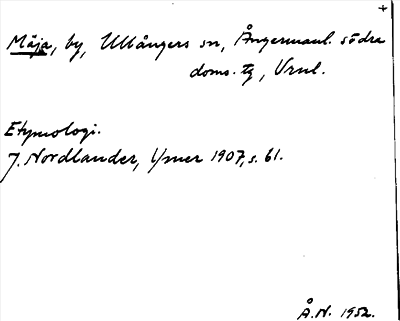 +
Måja, by, Ullångers sn, Ångermanl. södra
doms. tg, Vrnl.
Etymologi.
J. Nordlander, Ymer 1907, s. 61.
Å.N. 1952.